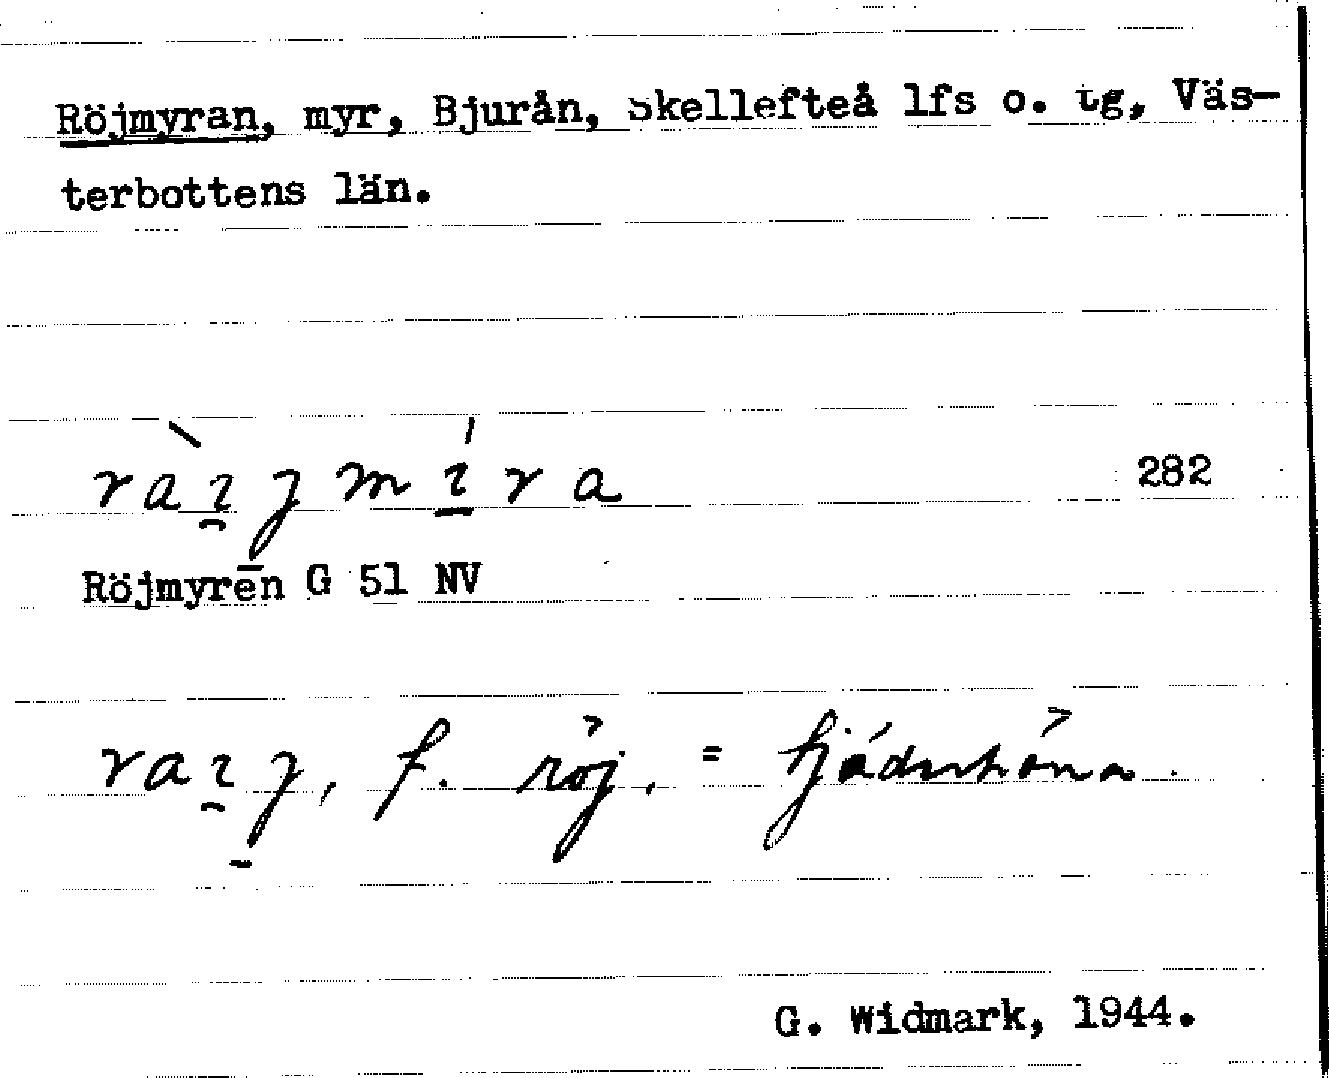 Röjmyran, myr, Bjurån, Skellefteå lfs o. tg, Väs-
terbottens län.
ràɪ̯jmɪ́ra 282
Röjmyren G 51 NV
raɪ̯j, f. röj. = fjäderhöna.
G. Widmark, 1944.